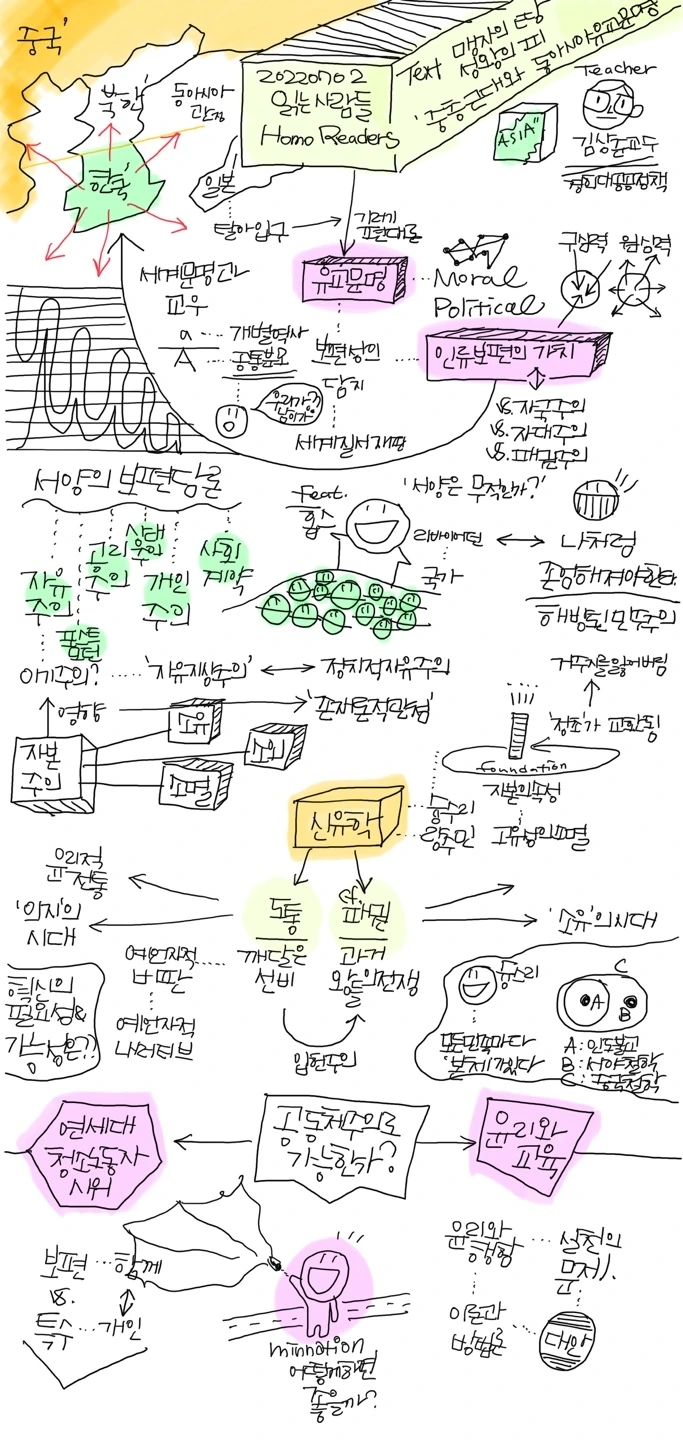 중국'
북한'
동아시아
관점
한국'
일본
20220702
읽는사람들
Homo Readers
Text 맹자의 땅
성왕의 피
'중층근대와 동아시아유교문명
ASIA"
Teacher
김상준교수
경희대공공정책
탈아입구
유교문명
Moral
Political
구심력
원심력
세계문명과
교우
a
A
개별역사
공통분모
보편성의
담지
인류보편의 가치
vs. 자국주의
vs. 자대주의
vs. 패권주의
우리가??
남이가?
세계질서재팡
서양의 보편담론
자유
주의
포스트
모던
상대
주의
개인
주의
사회
계약
Feat.
홉스
'서양은 무적인가?'
리바이어던
국가
나처럼
존엄해져야한다
해방된 민주주의
이기주의?
'자유지상주의'
정치적자유주의
거주지를 잃어버림
영향
'존재론적만점'
'정초'가 교환됨
자본
주의
소유
소외
소멸
foundation
자본의속성
고유성의파멸
신유학
풍우리
량수민
윤리적
전통
'의지'의
시대
도통
깨달은
선비
cf.
파밀
과거
왕들의전쟁
'소유'의시대
예언자적
비판
예언자적
내러티브
입헌주의
혁신의
필요성&
가능성은??
풍우리
모든민족마다
본체가있다
A
B
C
A: 인도불교
B: 서양철학
C: 중국철학
연세대
청소노동자
시위
공동체주의로
가능한가?
윤리와
교육
보편
함께
vs.
특수
개인
minnation
어떻게하면
좋을까?
윤리와
행함
실천의
문제).
이론과
방법론
대안